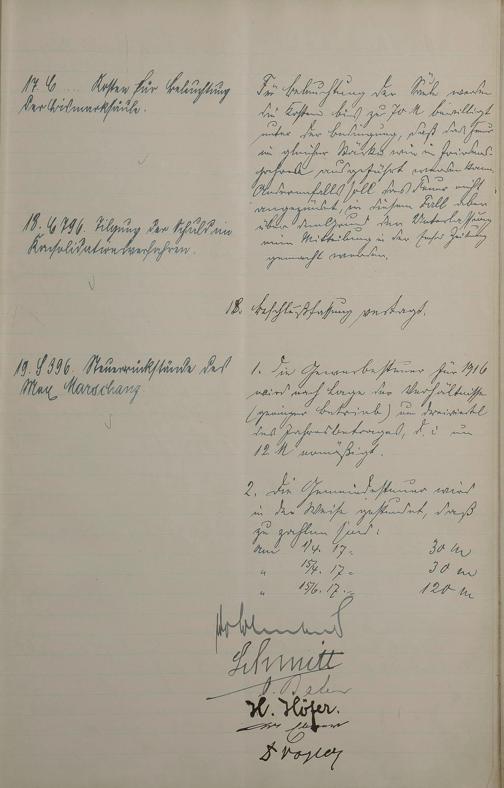 17. C .... Kosten für Beleuchtung
der Bismarksäule.
Für Beleuchtung der Säule werden
die Kosten bis zu 70 M bewilligt
unter der Bedingung, daß das Feuer
in gleicher Stärke wie in Friedens-
jahren ausgeführt werden kann.
Andernfalls soll das Feuer nicht
angezündet, in diesem Fall aber
über den Grund der Unterlassung
eine Mitteilung in der Zeitung
gemacht werden.
18. C 796. Tilgung der Schuld im
Konsolidationsverfahren.
18. Beschlußfassung vertagt.
19. S 396. Steuerrückstände des
Max Marschang
1. Die Gewerbesteuer für 1916
wird nach Lage der Verhältnisse
(geringer Betrieb) um dreiviertel
des Jahresbetrages, d. i. um
12 M ermäßigt.
2. Die Gemeindesteuer wird
in der Weise gestundet, daß
zu zahlen sind:
am 1/4. 17 = 30 M
" 15/4. 17 = 30 M
" 15/6. 17. = 120 M
Schmitt
H. Höfer.